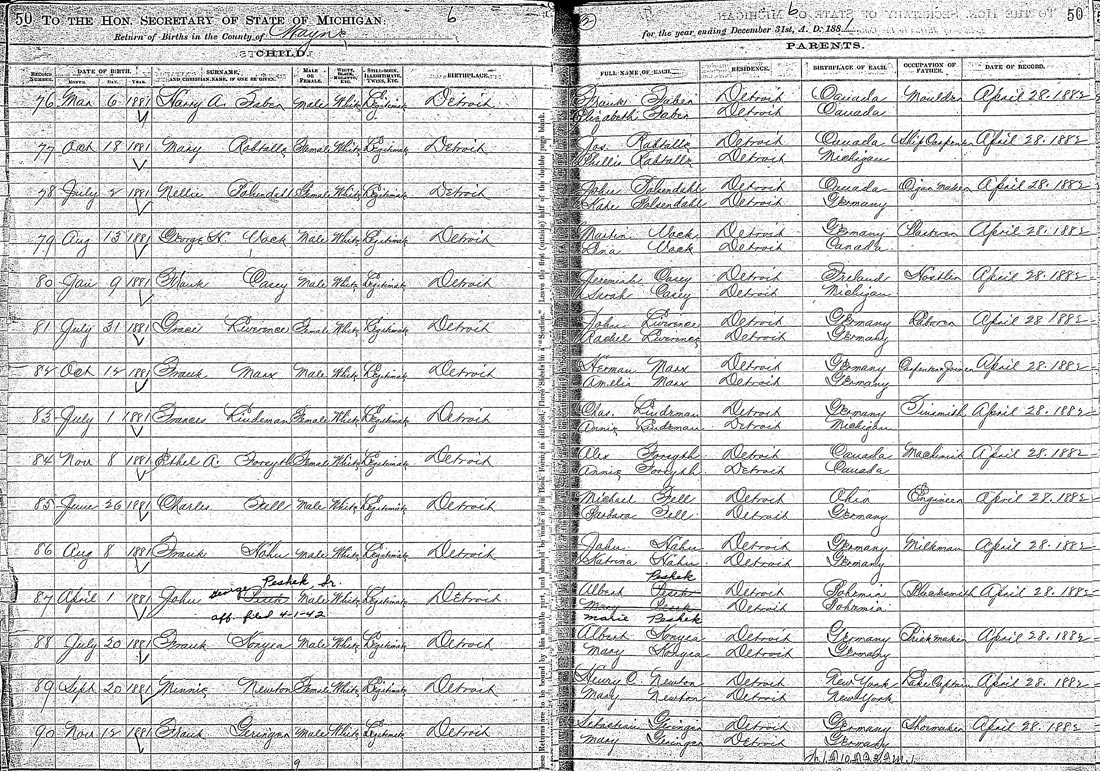 50 TO THE HON. SECRETARY OF STATE OF MICHIGAN. 6
Return of Births in the County of Wayne
CHILD.
RECORD NUMBER. DATE OF BIRTH. MONTH. DAY. YEAR. SURNAME, AND CHRISTIAN NAME, IF ONE BE GIVEN. MALE OR FEMALE. WHITE, BLACK, MULATTO, &c. STILL-BORN, ILLEGITIMATE, TWINS, ETC. BIRTHPLACE.
76 Mar 6 1881 Harry A. Faber Male White Legitimate Detroit
77 Oct 18 1881 Mary Rabtalls Female White Legitimate Detroit
78 July 2 1881 Nellie Female White Legitimate Detroit
79 Aug 13 1881 George H. Vack Male White Legitimate Detroit
80 Jan 9 1881 Frank Casey Male White Legitimate Detroit
81 July 31 1881 Gracie Liverence Female White Legitimate Detroit
82 Oct 12 1881 Frank Marx Male White Legitimate Detroit
83 July 1 1881 Frances Lindeman Female White Legitimate Detroit
84 Nov 8 1881 Ethel A. Forsyth Female White Legitimate Detroit
85 June 26 1881 Charles Fell Male White Legitimate Detroit
86 Aug 8 1881 Frank Hahn Male White Legitimate Detroit
George Peshek Sr.
87 April 1 1881 John Male White Legitimate Detroit
aff. filed 4-1-42
88 July 20 1881 Frank Sonyea Male White Legitimate Detroit
89 Sept 20 1881 Minnie Newton Female White Legitimate Detroit
90 Nov 12 1881 Frank Geringer Male White Legitimate Detroit
9
(2) 6 50
for the year ending December 31st, A. D. 1881
PARENTS.
FULL NAME OF EACH. RESIDENCE. BIRTHPLACE OF EACH. OCCUPATION OF FATHER. DATE OF RECORD.
Frank Faber Detroit Canada Moulder April 28. 1882
Elizabeth Faber Detroit Canada
Jos. Rabtalls Detroit Canada Ship Carpenter April 28. 1882
Phillis Rabtalls Detroit Michigan
John Folsendahl Detroit Canada Organ maker April 28. 1882
Kate Folsendahl Detroit Germany
Martin Vack Detroit Germany April 28. 1882
Lena Vack Detroit Canada
Jeremiah Casey Detroit Ireland Hostler April 28. 1882
Sarah Casey Detroit Michigan
John Liverence Detroit Germany Laborer April 28 1882
Rachel Liverence Detroit Germany
Herman Marx Detroit Germany Carpenter & Joiner April 28. 1882
Amelia Marx Detroit Germany
Chas. Lindeman Detroit Germany Tinsmith April 28. 1882
Annie Lindeman Detroit Michigan
Alex Forsyth Detroit Canada Machinist April 28. 1882
Annie Forsyth Detroit Canada
Michael Fell Detroit Ohio Engineer April 28. 1882
Barbara Fell Detroit Germany
John Hahn Detroit Germany Milkman April 28. 1882
Katrina Hahn Detroit Germany
Peshek
Albert Detroit Bohemia Blacksmith April 28. 1882
Mary Detroit Bohemia
Marie Peshek
Albert Sonyea Detroit Germany Brickmaker April 28. 1882
Mary Sonyea Detroit Germany
Henry C. Newton Detroit New York Lake Captain April 28. 1882
Mary Newton Detroit New York
Sebastian Geringer Detroit Germany Shoemaker April 28. 1882
Mary Geringer Detroit Germany